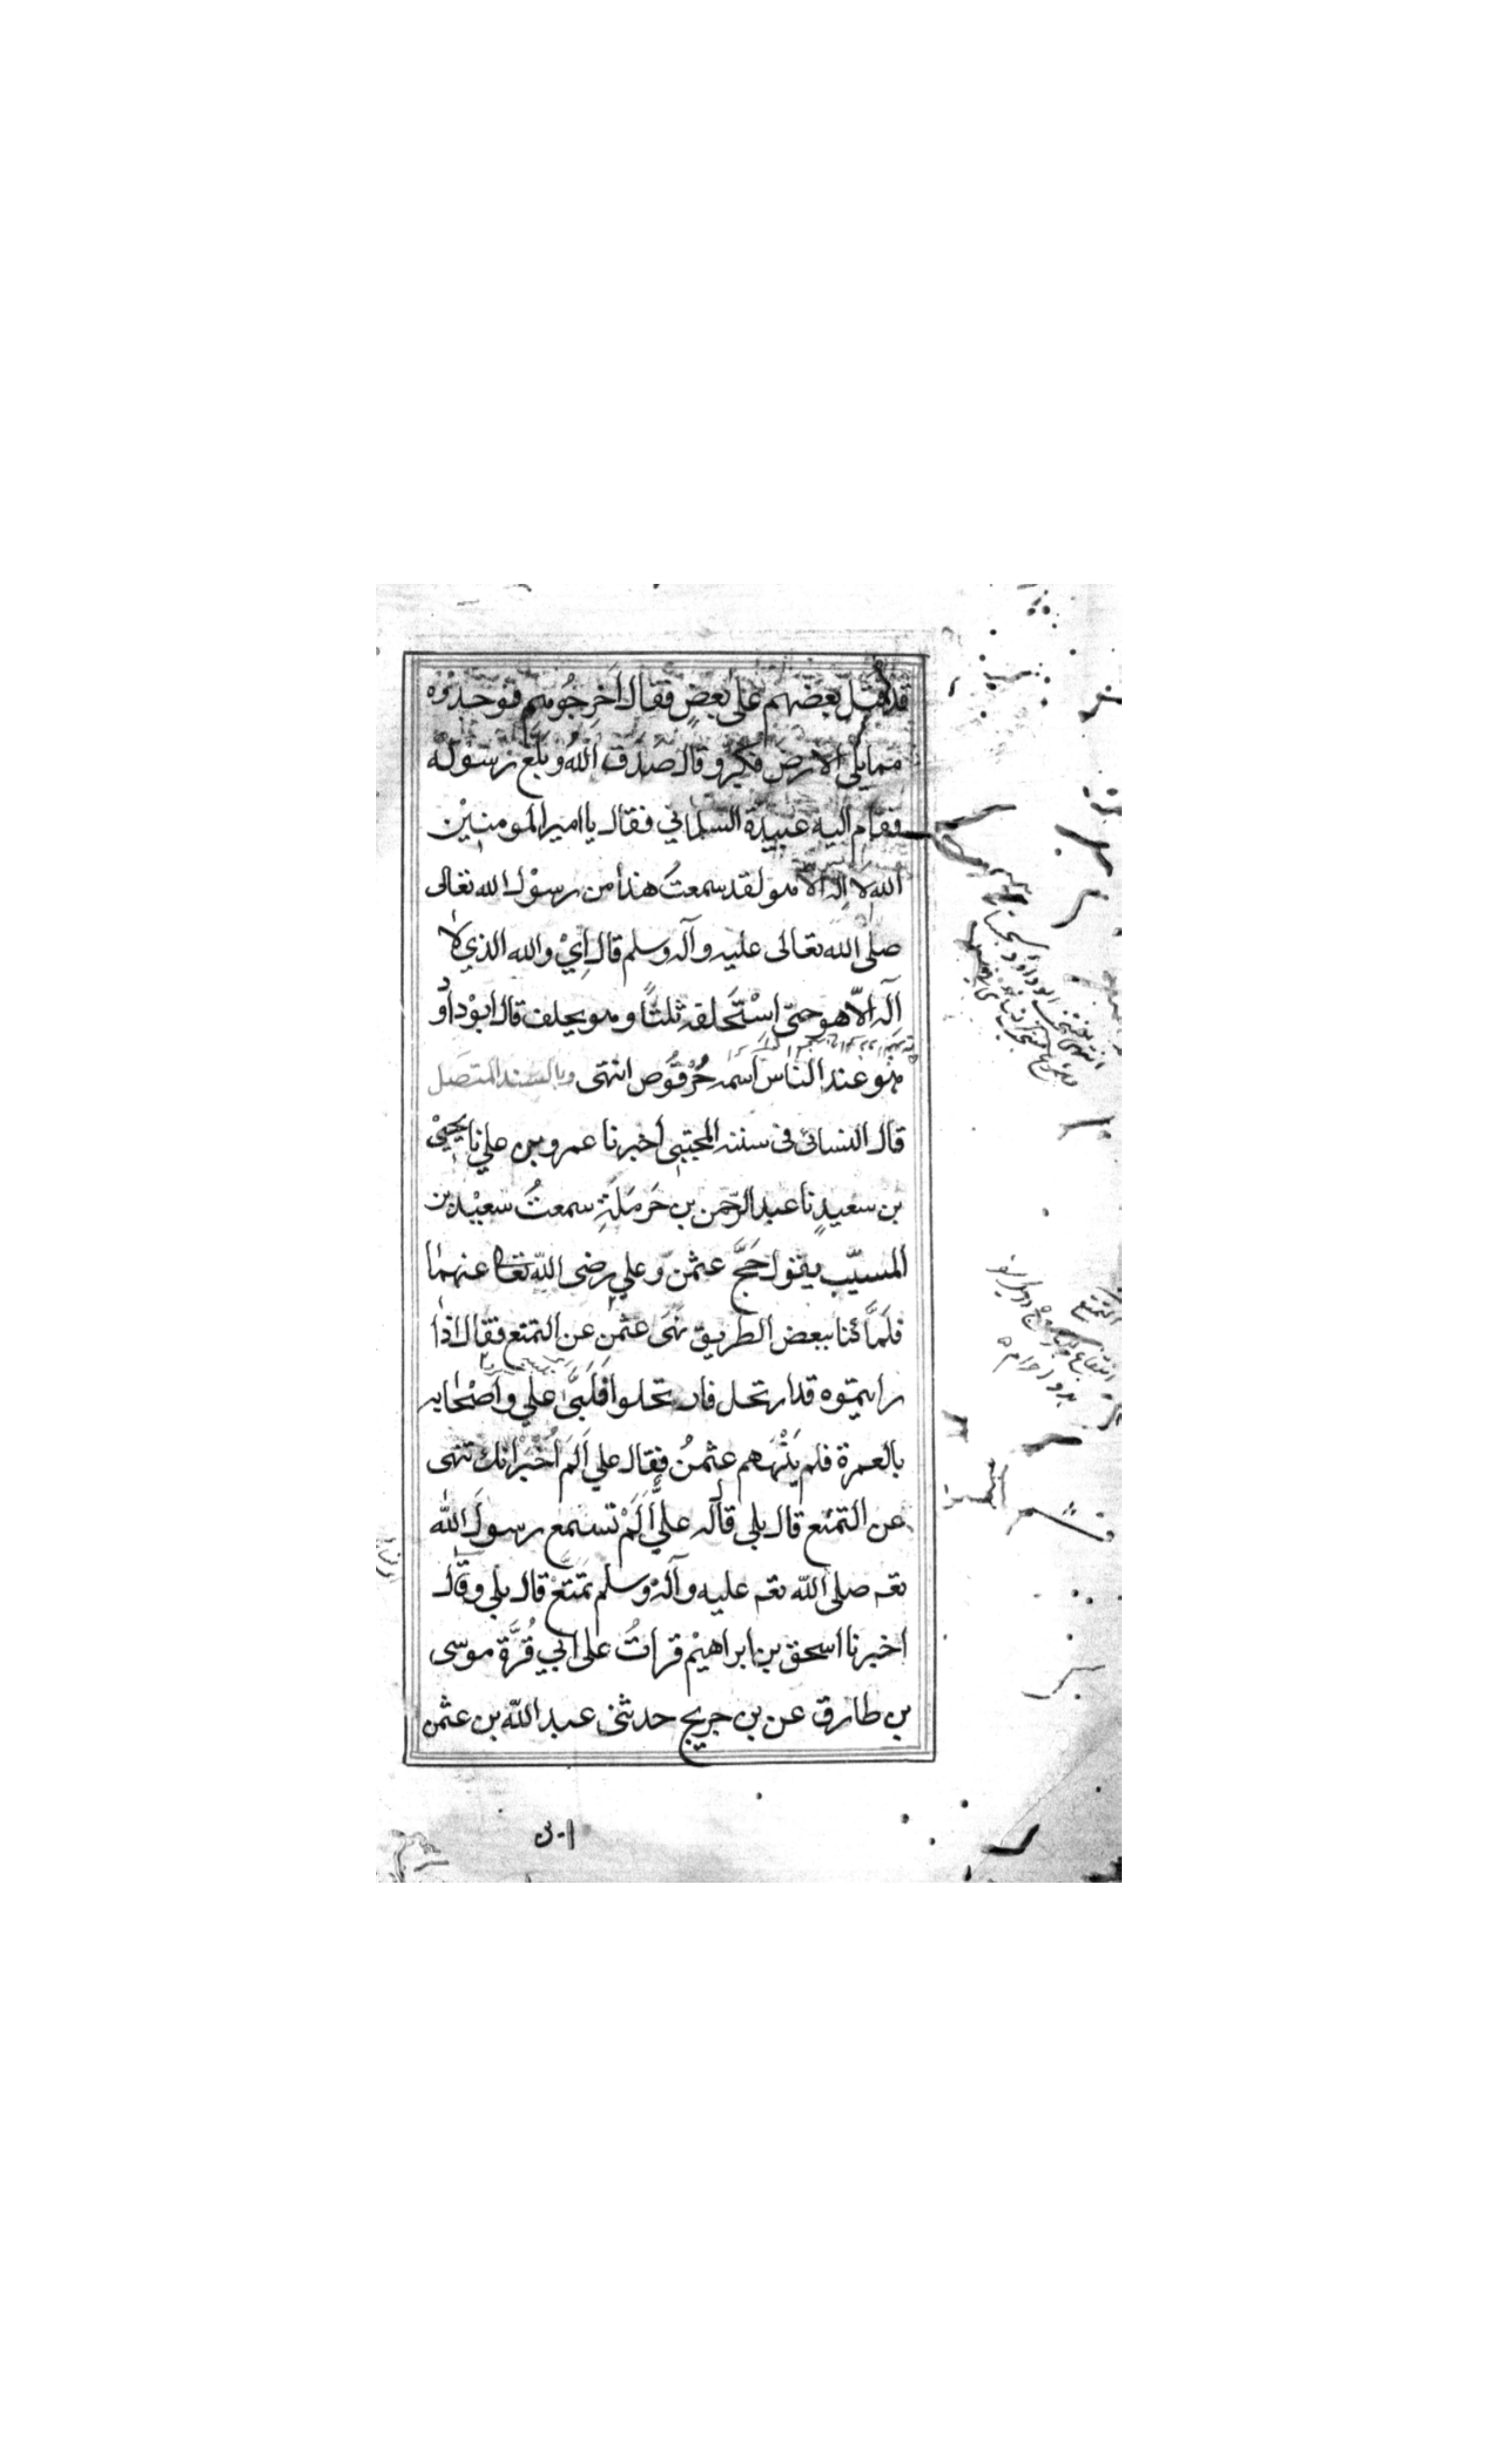 قد قتل بعضهم على بعضٍ فقال اَخرِجُوهم فوجدوْه
مما يلي الارضَ فكبّر وقال صَدَق اللهُ وبَلَّغ رسُولُه
فقام اليه عَبِيدة السلماني فقال يا امير المومنيْن
اللهِ لا اِلٰه الّا هو لقد سمعتَ هذا من رسوْل الله تعالى
صلى الله تعالى عليه وآله وسلم قال اِيْ والله الذي لا
اِلٰه الّا هو حتى اسْتَحلفه ثلثًا وهو يحلف قال ابوْ داوٗد
هو عند الناس اسمه حُرْقُوْص انتهى وبالسند المتصل
قال النسائي في سننه المجتبى اخبرنا عمرو بن علي نا يحيىْ
بن سعيدٍ نا عبد الرّحمن بن حَرمَلَةِ سمعتُ سعيْد بن
المسيّب يقول حَجَّ عثمٰن وعلي رضى الله تعالى عنهما
فلمَّا كنا ببعض الطريق نهَى عثمٰن عن التمتع فقال اذا
رايتموه قد ارتحل فارتحلوا فَلَبىَّ علي واَصْحابه
بالعمرة فلم يَنْهَهم عثمٰنُ فقال علي اَلَم اُخْبَرْ انك تنهى
عن التمتع قال بلى قال له عليٌّ اَلَمْ تسمع رسولَ الله
تعـ صلى الله تعـ عليه وآله وسلم تمتعْ قال بلى وقال
اخبرنا اسحق بن ابراهيْم قراتُ على ابي قُرَّة موسى
بن طارق عن بن جريج حدثنى عبد الله بن عثمٰن